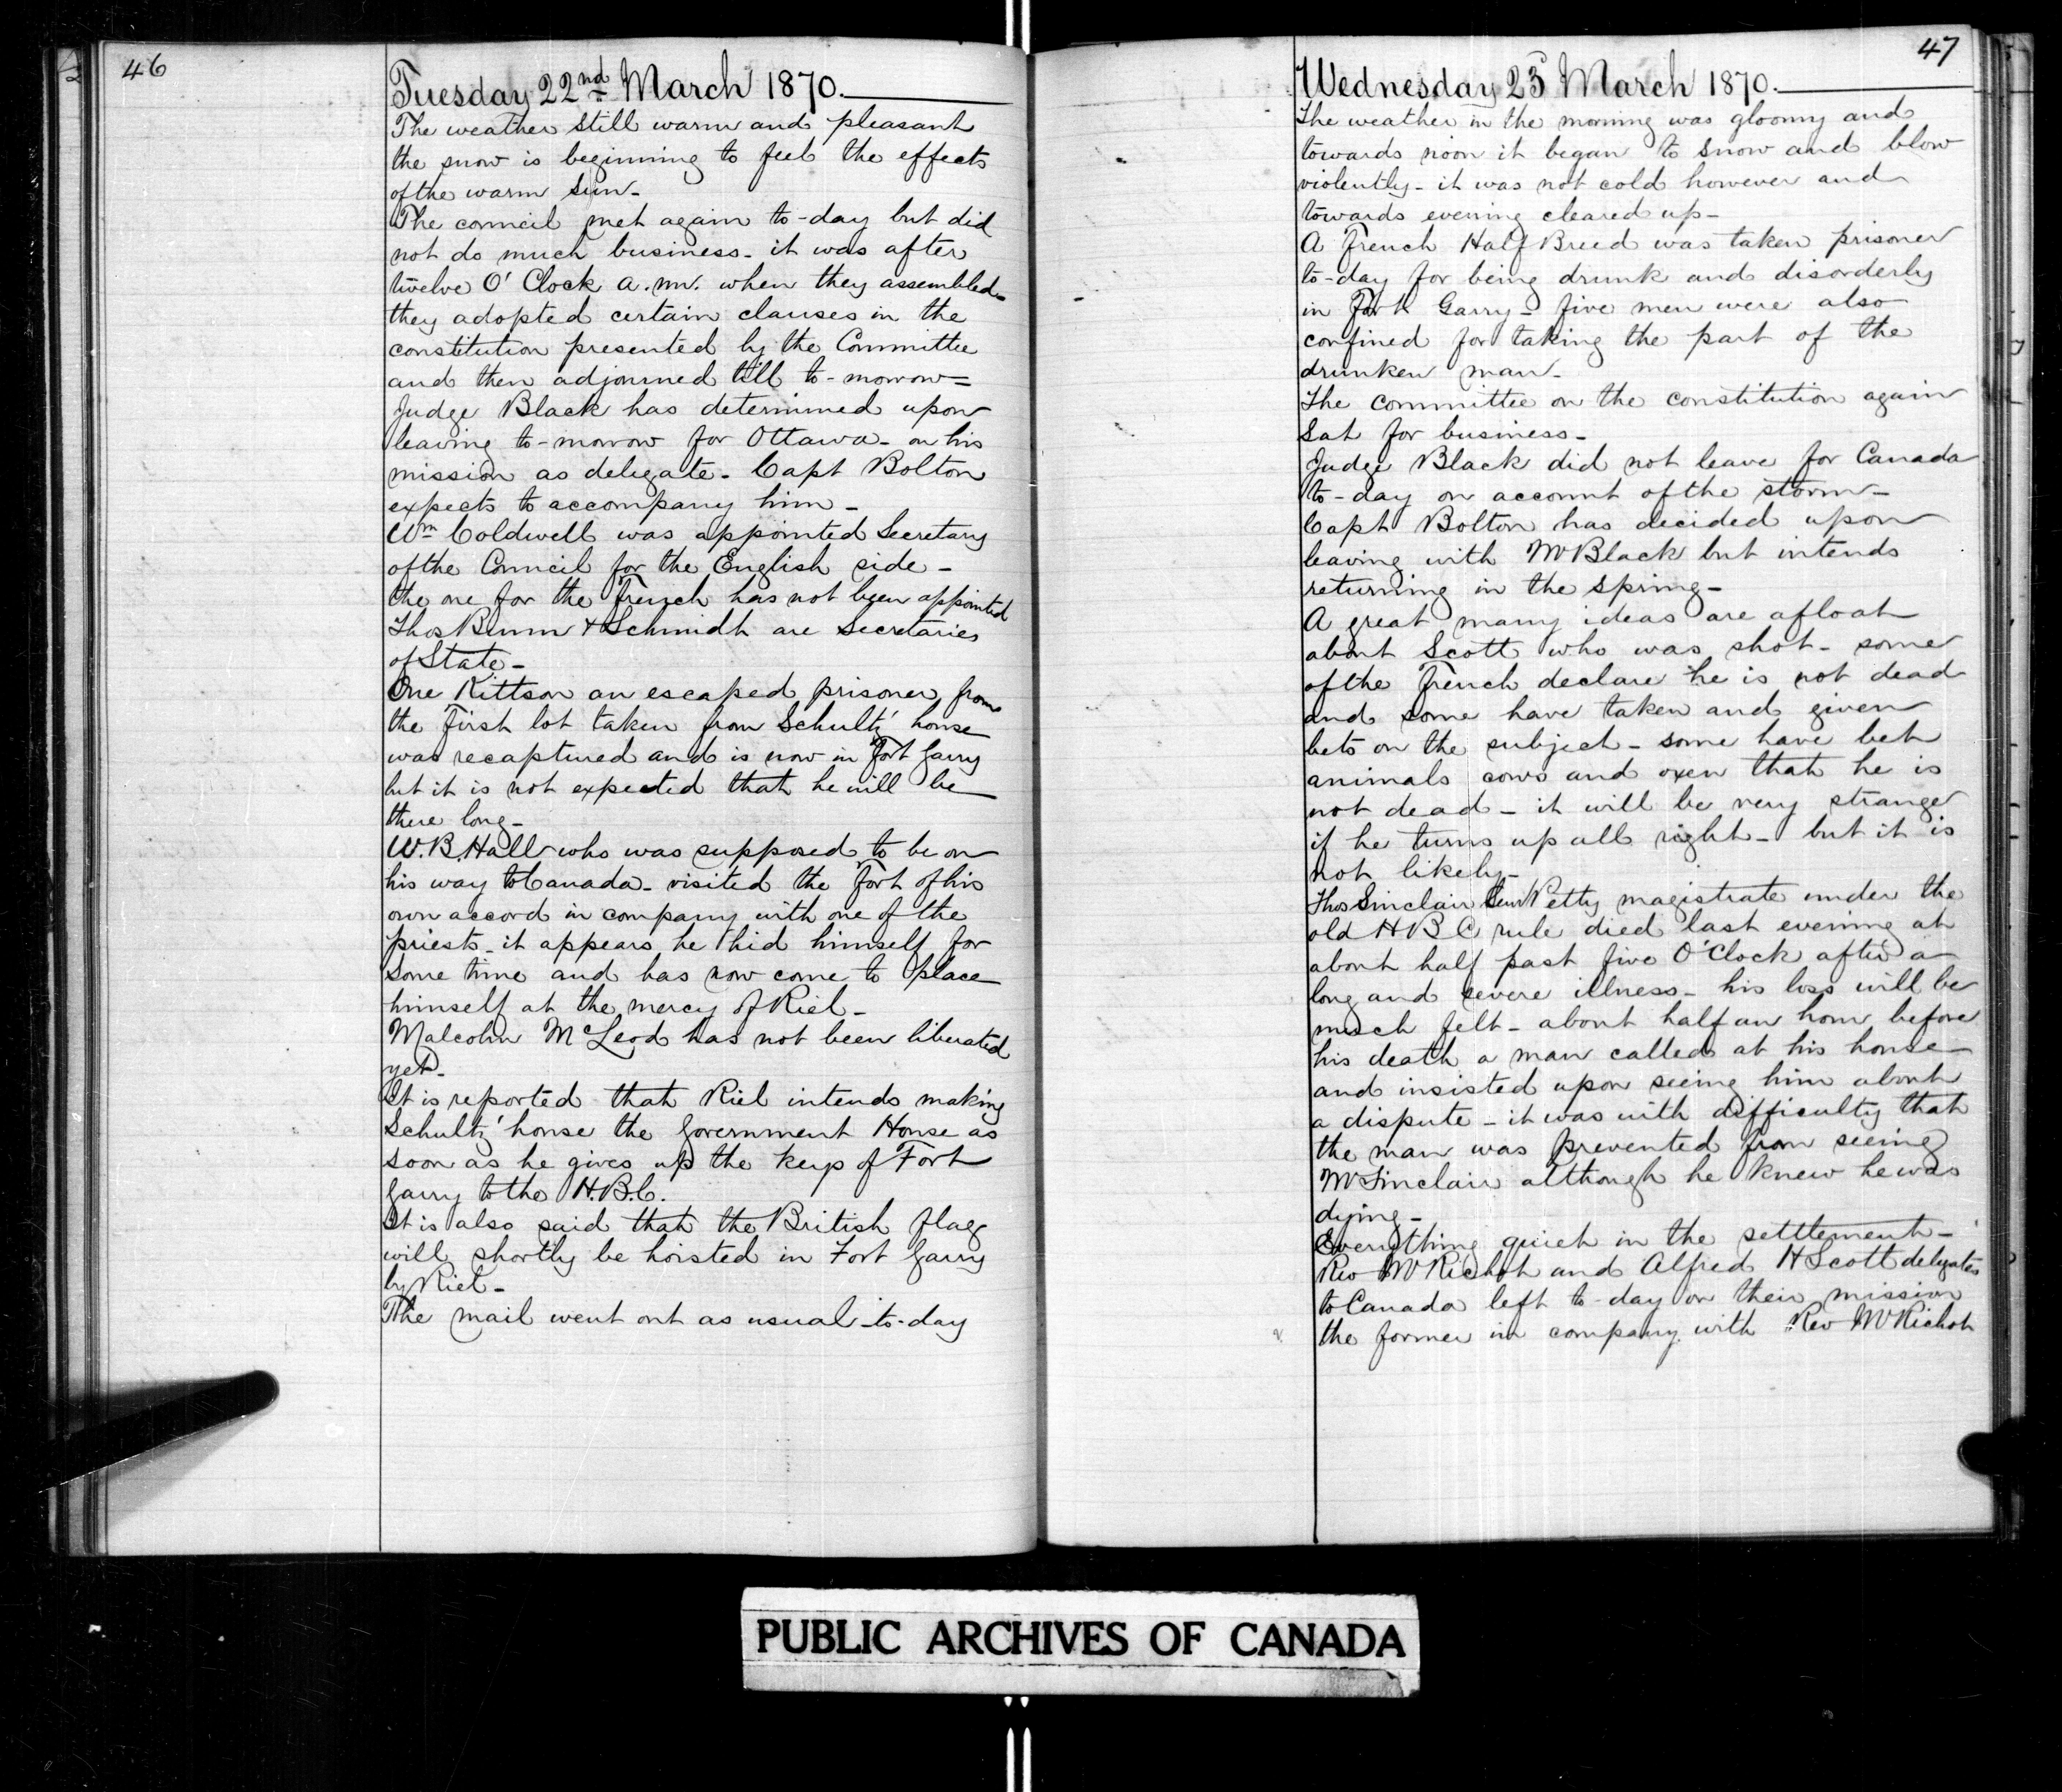 46
Tuesday 22nd March 1870.
The weather still warm and pleasant
the snow is beginning to feel the effects
of the warm sun -
The council met again to-day but did
not do much business - it was after
twelve O'Clock a.m. when they assembled -
they adopted certain clauses in the
constitution presented by the Committee
and then adjourned till to-morrow =
Judge Black has determined upon
leaving to-morrow for Ottawa - on his
mission as delegate - Capt Bolton
expects to accompany him -
Wm Coldwell was appointed Secretary
of the Council for the English side -
the one for the French has not been appointed
Thos Bunn & Schmidt are Secretaries
of State -
One Kittson an escaped prisoner from
the first lot taken from Schultz' house
was recaptured and is now in Fort Garry
but it is not expected that he will be
there long -
W.B. Hall who was supposed to be on
his way to Canada - visited the Fort of his
own accord in company with one of the
priests - it appears he hid himself for
some time and has now come to place
himself at the mercy of Riel -
Malcolm McLeod has not been liberated
yet -
It is reported that Riel intends making
Schultz' house the Government House as
soon as he gives up the keys of Fort
Garry to the H.B.C.
It is also said that the British flag
will shortly be hoisted in Fort Garry
by Riel -
The mail went out as usual to-day
47
Wednesday 23 March 1870.
The weather in the morning was gloomy and
towards noon it began to snow and blow
violently - it was not cold however and
towards evening cleared up -
A French Half Breed was taken prisoner
to-day for being drunk and disorderly
in Fort Garry - five men were also
confined for taking the part of the
drunken man -
The committee on the constitution again
sat for business -
Judge Black did not leave for Canada
to-day on account of the storm -
Capt Bolton has decided upon
leaving with Mr Black but intends
returning in the spring -
A great many ideas are afloat
about Scott who was shot - some
of the French declare he is not dead
and some have taken and given
bets on the subject - some have bet
animals cows and oxen that he is
not dead - it will be very strange
if he turns up all right - but it is
not likely -
Thos Sinclair Senr Petty magistrate under the
old H B C rule died last evening at
about half past five O'Clock after a
long and severe illness - his loss will be
much felt - about half an hour before
his death a man called at his house
and insisted upon seeing him about
a dispute - it was with difficulty that
the man was prevented from seeing
Mr Sinclair although he knew he was
dying -
Everything quiet in the settlement -
Rev Mr Richot and Alfred H Scott delegates
to Canada left to-day on their mission
the former in company with Rev Mr Richot
PUBLIC ARCHIVES OF CANADA